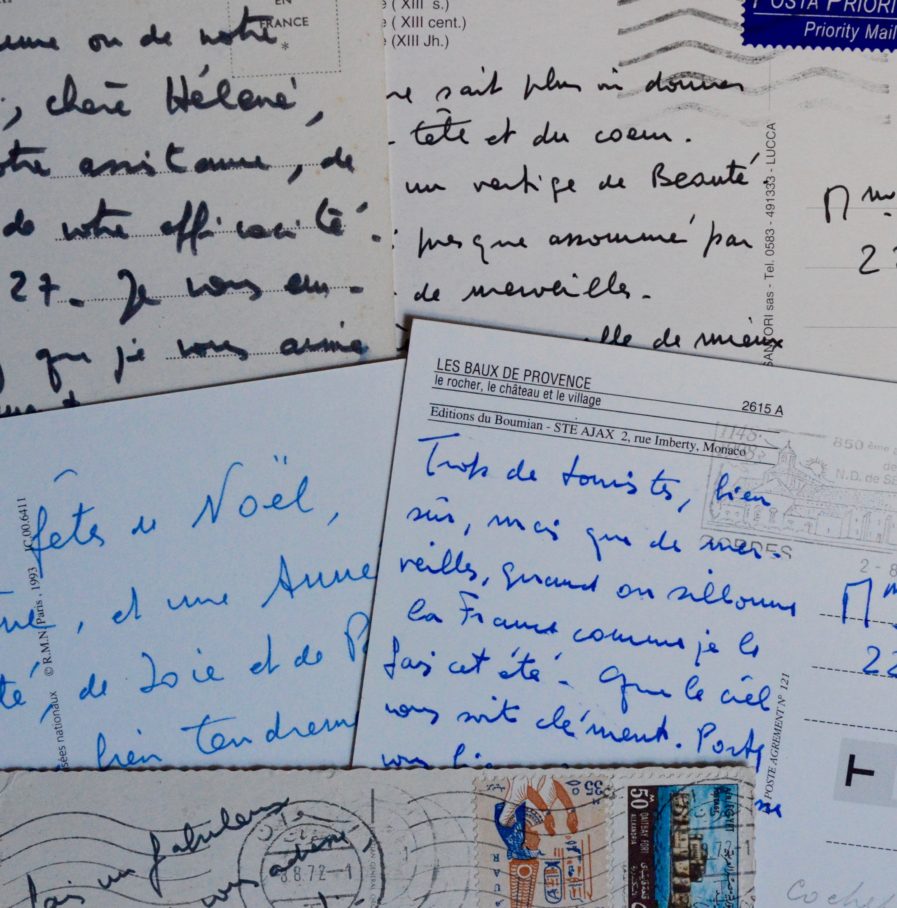 EN
FRANCE
*
ou de notre
, chère Hélène,
assistance, de
de votre efficacité.
27. Je vous em-
que je vous aime
( XIII s.)
( XIII cent.)
(XIII Jh.)
ne sait plus où donner
tête et du coeur.
un vertige de Beauté,
presque assommé par
de merveilles.
de mieux
POSTA PRIORI
Priority Mail
SALVATORI sas - Tel. 0583 - 491333 - LUCCA
Mme
2
fêtes de Noël,
, et une Anne
té, de Joie et de P
bien tendrem
sées nationaux © R.M.N. Paris, 1993 JC.00.6411
LES BAUX DE PROVENCE
le rocher, le château et le village
2615 A
Editions du Boumian - STE AJAX 2, rue Imberty, Monaco
Trop de touristes, bien
sûr, mais que de mer-
veilles, quand on sillonne
la France comme je le
fais cet été - Que le ciel
vous soit clément. Portez
vous bien
850 ème
de
N.D. de Sé
GORDES
2 - 8
Mm
22
POSTE AGREMENT N° 121
T
fais un fabuleux
vous
8.8.72-1
35
50
QAITBAY FORT
ALEXANDRIA
8.72-1